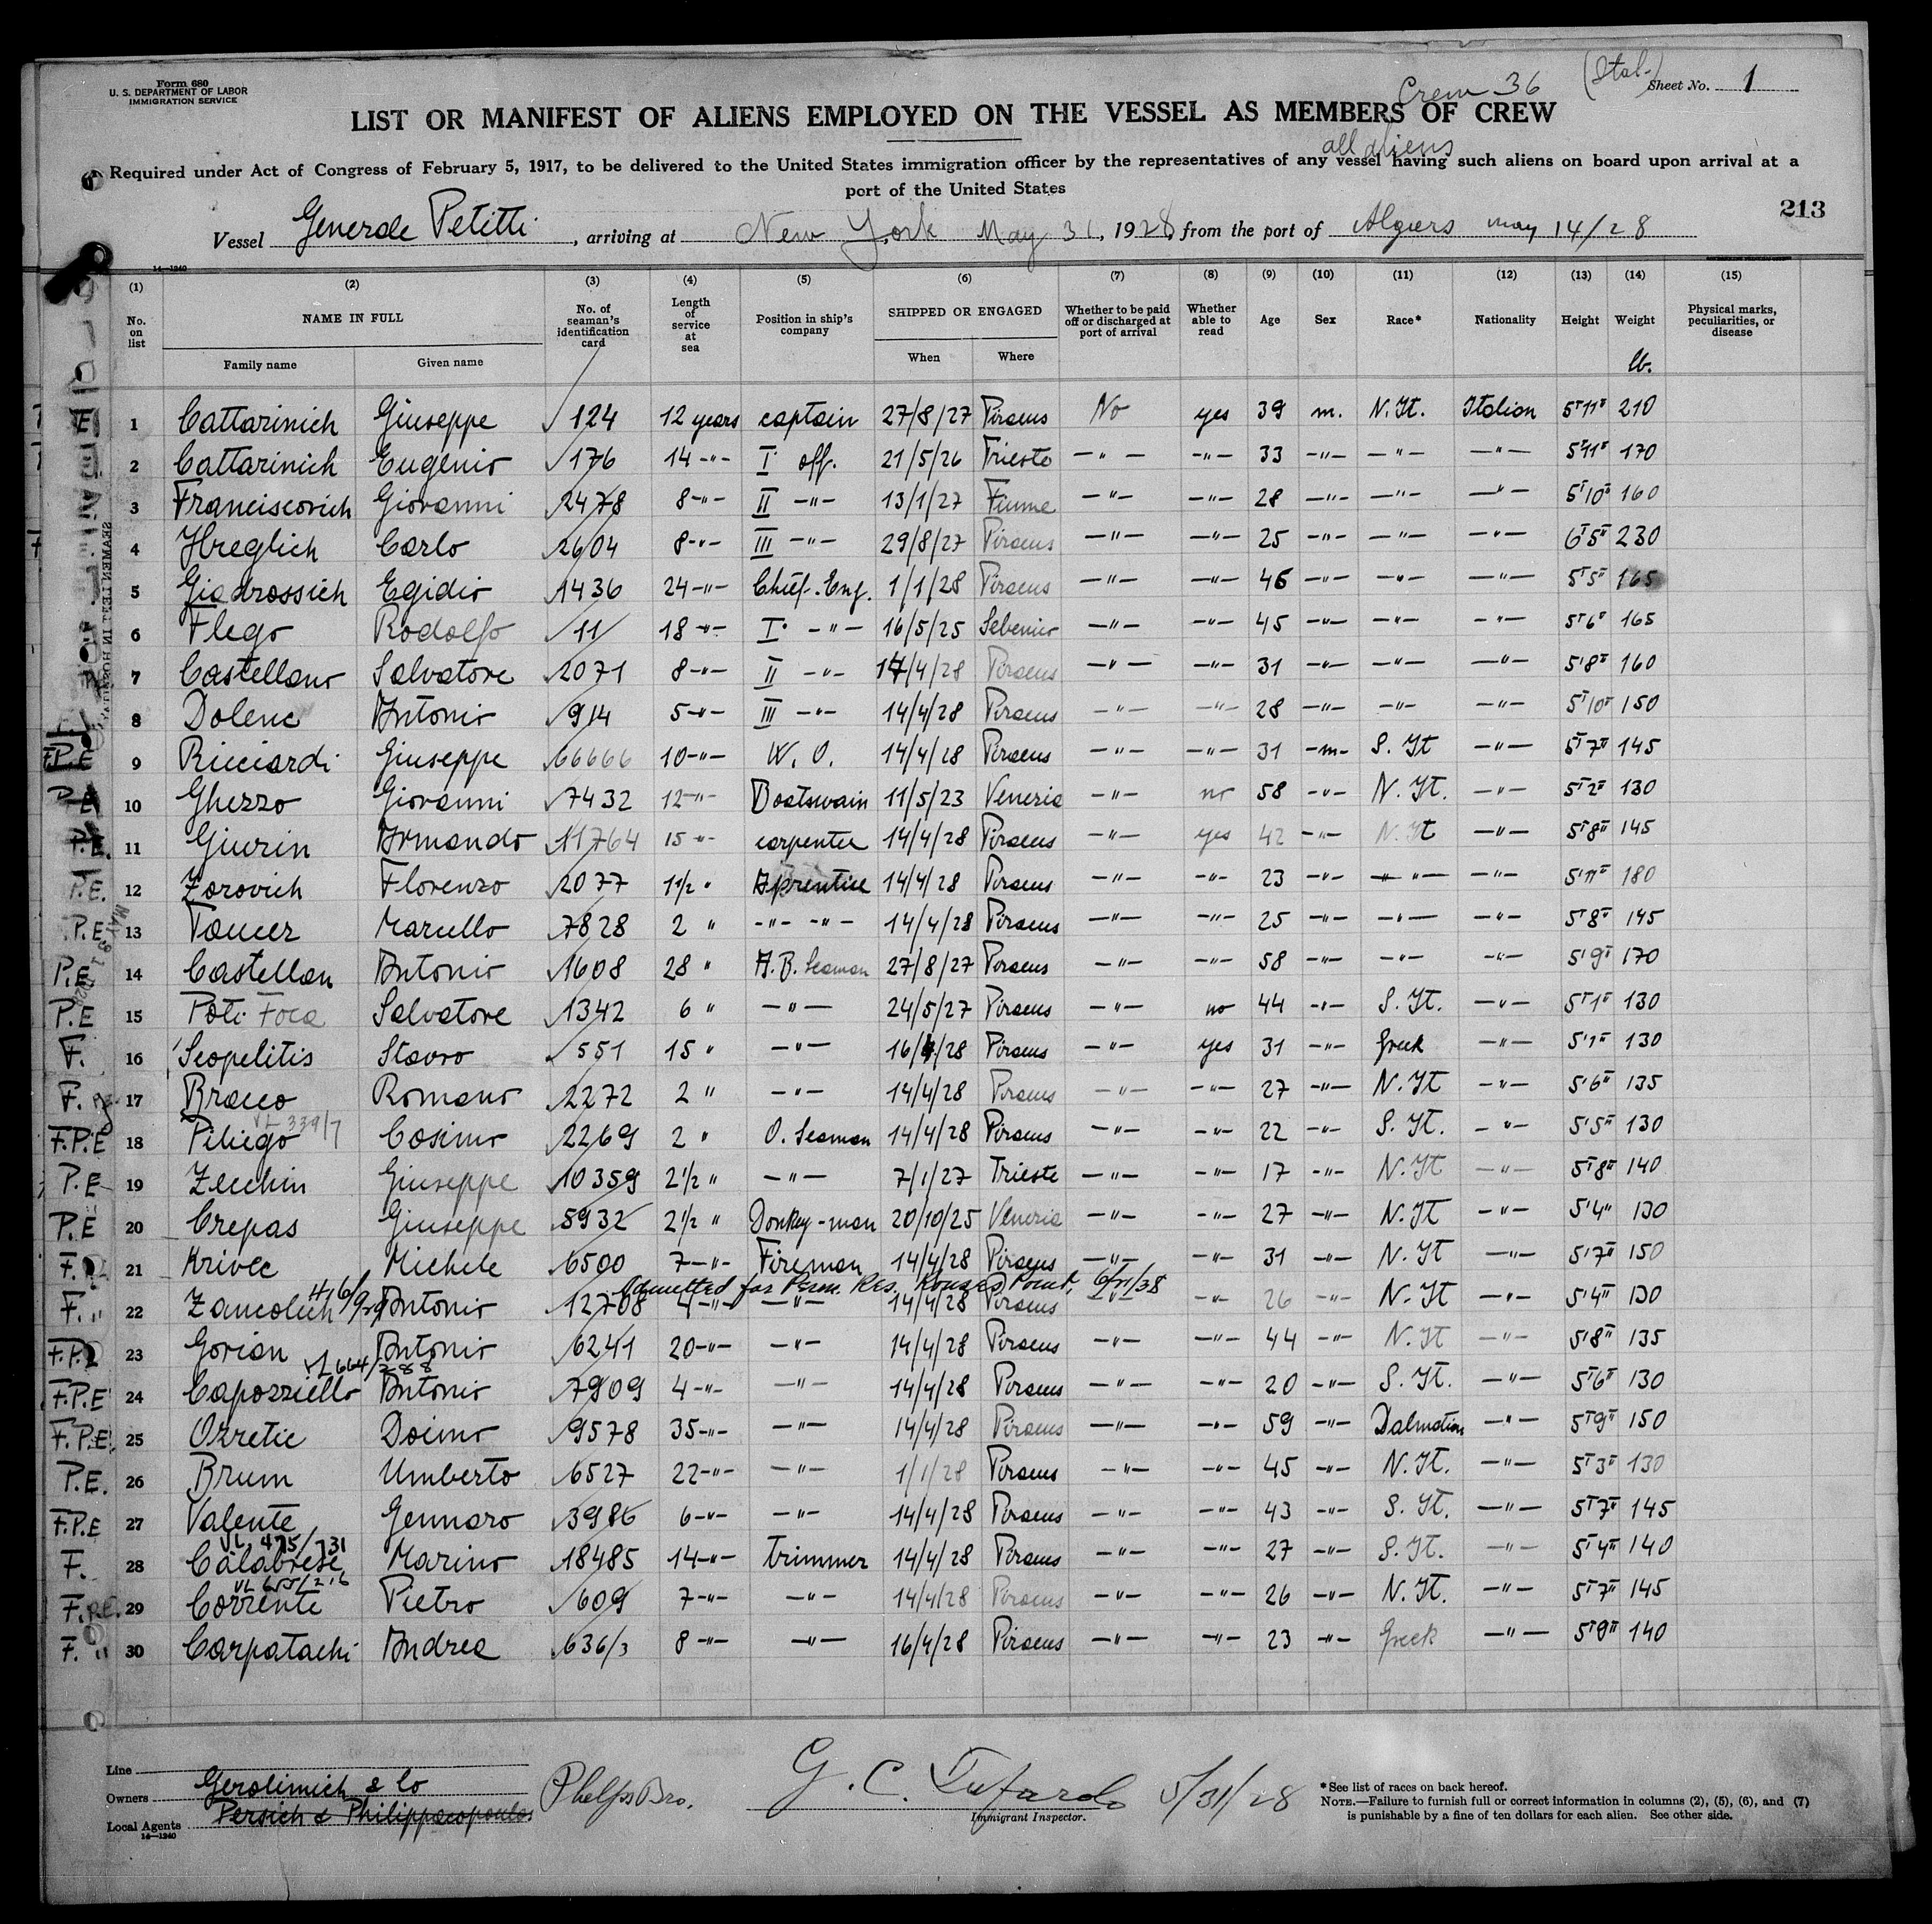 Form 680
U. S. DEPARTMENT OF LABOR
IMMIGRATION SERVICE
Crew 36 (Ital.) Sheet No. 1
LIST OR MANIFEST OF ALIENS EMPLOYED ON THE VESSEL AS MEMBERS OF CREW
all aliens
Required under Act of Congress of February 5, 1917, to be delivered to the United States immigration officer by the representatives of any vessel having such aliens on board upon arrival at a
port of the United States
213
Vessel Generale Petitti, arriving at New York May 31, 1928, from the port of Algiers may 14/28
14—1240
(1) (2) (3) (4) (5) (6) (7) (8) (9) (10) (11) (12) (13) (14) (15)
No. on list NAME IN FULL Family name Given name No. of seaman's identification card Length of service at sea Position in ship's company SHIPPED OR ENGAGED When Where Whether to be paid off or discharged at port of arrival Whether able to read Age Sex Race* Nationality Height Weight lb. Physical marks, peculiarities, or disease
E 1 Cattarinich Giuseppe 124 12 years captain 27/8/27 Piraeus No yes 39 m. N. It. Italian 5'11" 210
2 Cattarinich Eugenio 176 14 -"- I off. 21/5/26 Trieste -"- -"- 33 -"- -"- -"- 5'11" 170
3 Franciscovich Giovanni 2478 8 -"- II -"- 13/1/27 Fiume -"- -"- 28 -"- -"- -"- 5'10" 160
4 Hreglich Carlo 2604 8 -"- III -"- 29/8/27 Piraeus -"- -"- 25 -"- -"- -"- 6'5" 230
5 Giadrossich Egidio 1436 24 -"- Chief. Eng. 1/1/28 Piraeus -"- -"- 46 -"- -"- -"- 5'5" 165
6 Flego Rodolfo 11 18 -"- I° -"- 16/5/25 Sebenico -"- -"- 45 -"- -"- -"- 5'6" 165
7 Castellano Salvatore 2071 8 -"- II -"- 14/4/28 Piraeus -"- -"- 31 -"- -"- -"- 5'8" 160
8 Dolenc Antonio 914 5 -"- III -"- 14/4/28 Piraeus -"- -"- 28 -"- -"- -"- 5'10" 150
F.P.E 9 Ricciardi Giuseppe 66666 10 -"- W. O. 14/4/28 Piraeus -"- -"- 31 -m- S. It -"- 5'7" 145
P.E 10 Ghezzo Giovanni 7432 12 -"- Boatswain 11/5/23 Venezia -"- no 58 -"- N. It. -"- 5'2" 130
P.E. 11 Giurin Armando 11764 15 -"- carpenter 14/4/28 Piraeus -"- yes 42 -"- N. It -"- 5'8" 145
P.E. 12 Zorovich Florenzo 2077 1 1/2 " Aprentice 14/4/28 Piraeus -"- -"- 23 -"- -"- -"- 5'11" 180
P.E 13 Toncer Marcello 7828 2 " -"- -"- 14/4/28 Piraeus -"- -"- 25 -"- -"- -"- 5'8" 145
P.E 14 Castellan Antonio 1608 28 " A. B. Seaman 27/8/27 Piraeus -"- -"- 58 -"- -"- -"- 5'9" 170
P.E 15 Poti Foca Salvatore 1342 6 " -"- 24/5/27 Piraeus -"- no 44 -"- S. It. -"- 5'1" 130
F. 16 Scopelitis Stavro 551 15 " -"- 16/4/28 Piraeus -"- yes 31 -"- Greek -"- 5'1" 130
F. 17 Bracco Romano 2272 2 " -"- 14/4/28 Piraeus -"- -"- 27 -"- N. It -"- 5'6" 135
VL 339/7
F.P.E 18 Piliego Cosimo 2269 2 " O. Seaman 14/4/28 Piraeus -"- -"- 22 -"- S. It. -"- 5'5" 130
P.E 19 Zecchin Giuseppe 10359 2 1/2 " -"- 7/1/27 Trieste -"- -"- 17 -"- N. It -"- 5'8" 140
P.E 20 Crepas Giuseppe 5932 2 1/2 " Donkey-man 20/10/25 Venezia -"- -"- 27 -"- N. It -"- 5'4" 130
F. 21 Krivec Michele 6500 7 -"- Fireman 14/4/28 Piraeus -"- -"- 31 -"- N. It -"- 5'7" 150
Admitted for Perm. Res. Rouses Point, 6/21/38
F. 22 Zancolich Antonio 12708 4 -"- -"- 14/4/28 Piraeus -"- -"- 26 -"- N. It -"- 5'4" 130
F.P. 23 Gorian Antonio 6241 20 -"- -"- 14/4/28 Piraeus -"- -"- 44 -"- N. It -"- 5'8" 135
VL 664/288
F.P.E 24 Capozziello Antonio 7909 4 -"- -"- 14/4/28 Piraeus -"- -"- 20 -"- S. It. -"- 5'6" 130
F.P.E 25 Orretic Doimo 9578 35 -"- -"- 14/4/28 Piraeus -"- -"- 59 -"- Dalmatian -"- 5'9" 150
P.E. 26 Brum Umberto 6527 22 -"- -"- 1/1/28 Piraeus -"- -"- 45 -"- N. It. -"- 5'3" 130
F.P.E 27 Valente Gennaro 3986 6 -"- -"- 14/4/28 Piraeus -"- -"- 43 -"- S. It. -"- 5'7" 145
VL 475/731
F. 28 Calabrese Marino 18485 14 -"- trimmer 14/4/28 Piraeus -"- -"- 27 -"- S. It. -"- 5'4" 140
F.P.E. 29 Corrente Pietro 609 7 -"- -"- 14/4/28 Piraeus -"- -"- 26 -"- N. It. -"- 5'7" 145
F. 30 Carpatachi Andrea 636/3 8 -"- -"- 16/4/28 Piraeus -"- -"- 23 -"- Greek -"- 5'9" 140
Line
Owners Gerolimich & Co Phelps Bro.
Local Agents Persich & Philippacopoulos
14—1240
G. C. Tufardo 5/31/28
Immigrant Inspector.
*See list of races on back hereof.
NOTE.—Failure to furnish full or correct information in columns (2), (5), (6), and (7)
is punishable by a fine of ten dollars for each alien. See other side.